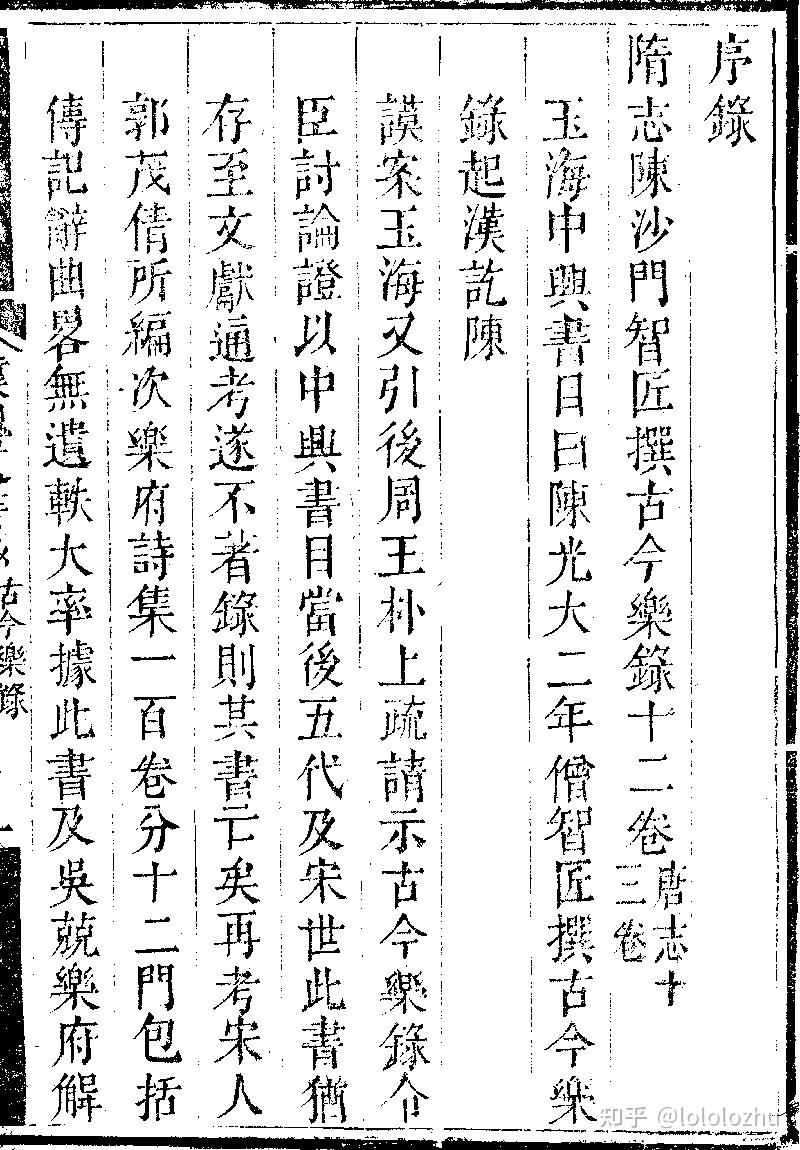 序錄
隋志陳沙門智匠撰古今樂錄十二卷唐志十三卷
玉海中興書目曰陳光大二年僧智匠撰古今樂
錄起漢訖陳
謨案玉海又引後周王朴上疏請示古今樂錄令
臣討論證以中興書目當後五代及宋世此書猶
存至文獻通考遂不著錄則其書亡矣再考宋人
郭茂倩所編次樂府詩集一百卷分十二門包括
傳記辭曲畧無遺軼大率據此書及吳兢樂府解
古今樂錄
知乎 @lololozhu